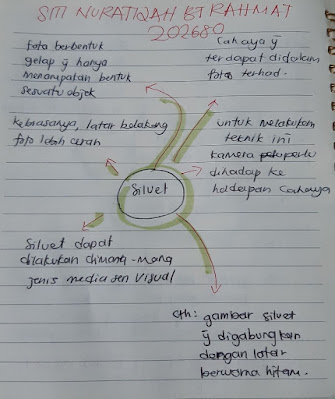 SITI NURATIQAH BT RAHMAT
202680
foto berbentuk
gelap ÿ hanya
menampatan bentuk
sesuatu objek
Cahaya ÿ
terdapat didalam
foto terhad.
kebiasanya, latar belakang
foto lebih cerah
untuk melakukan
teknik ini
kamera perlu
dihadap ke
hadapan Cahaya
Siluet
Siluet dapat
dilakukan dimana-mana
jenis media sen visual
cth: gambar siluet
ÿ digabungkan
dengan latar
berwarna hitam.